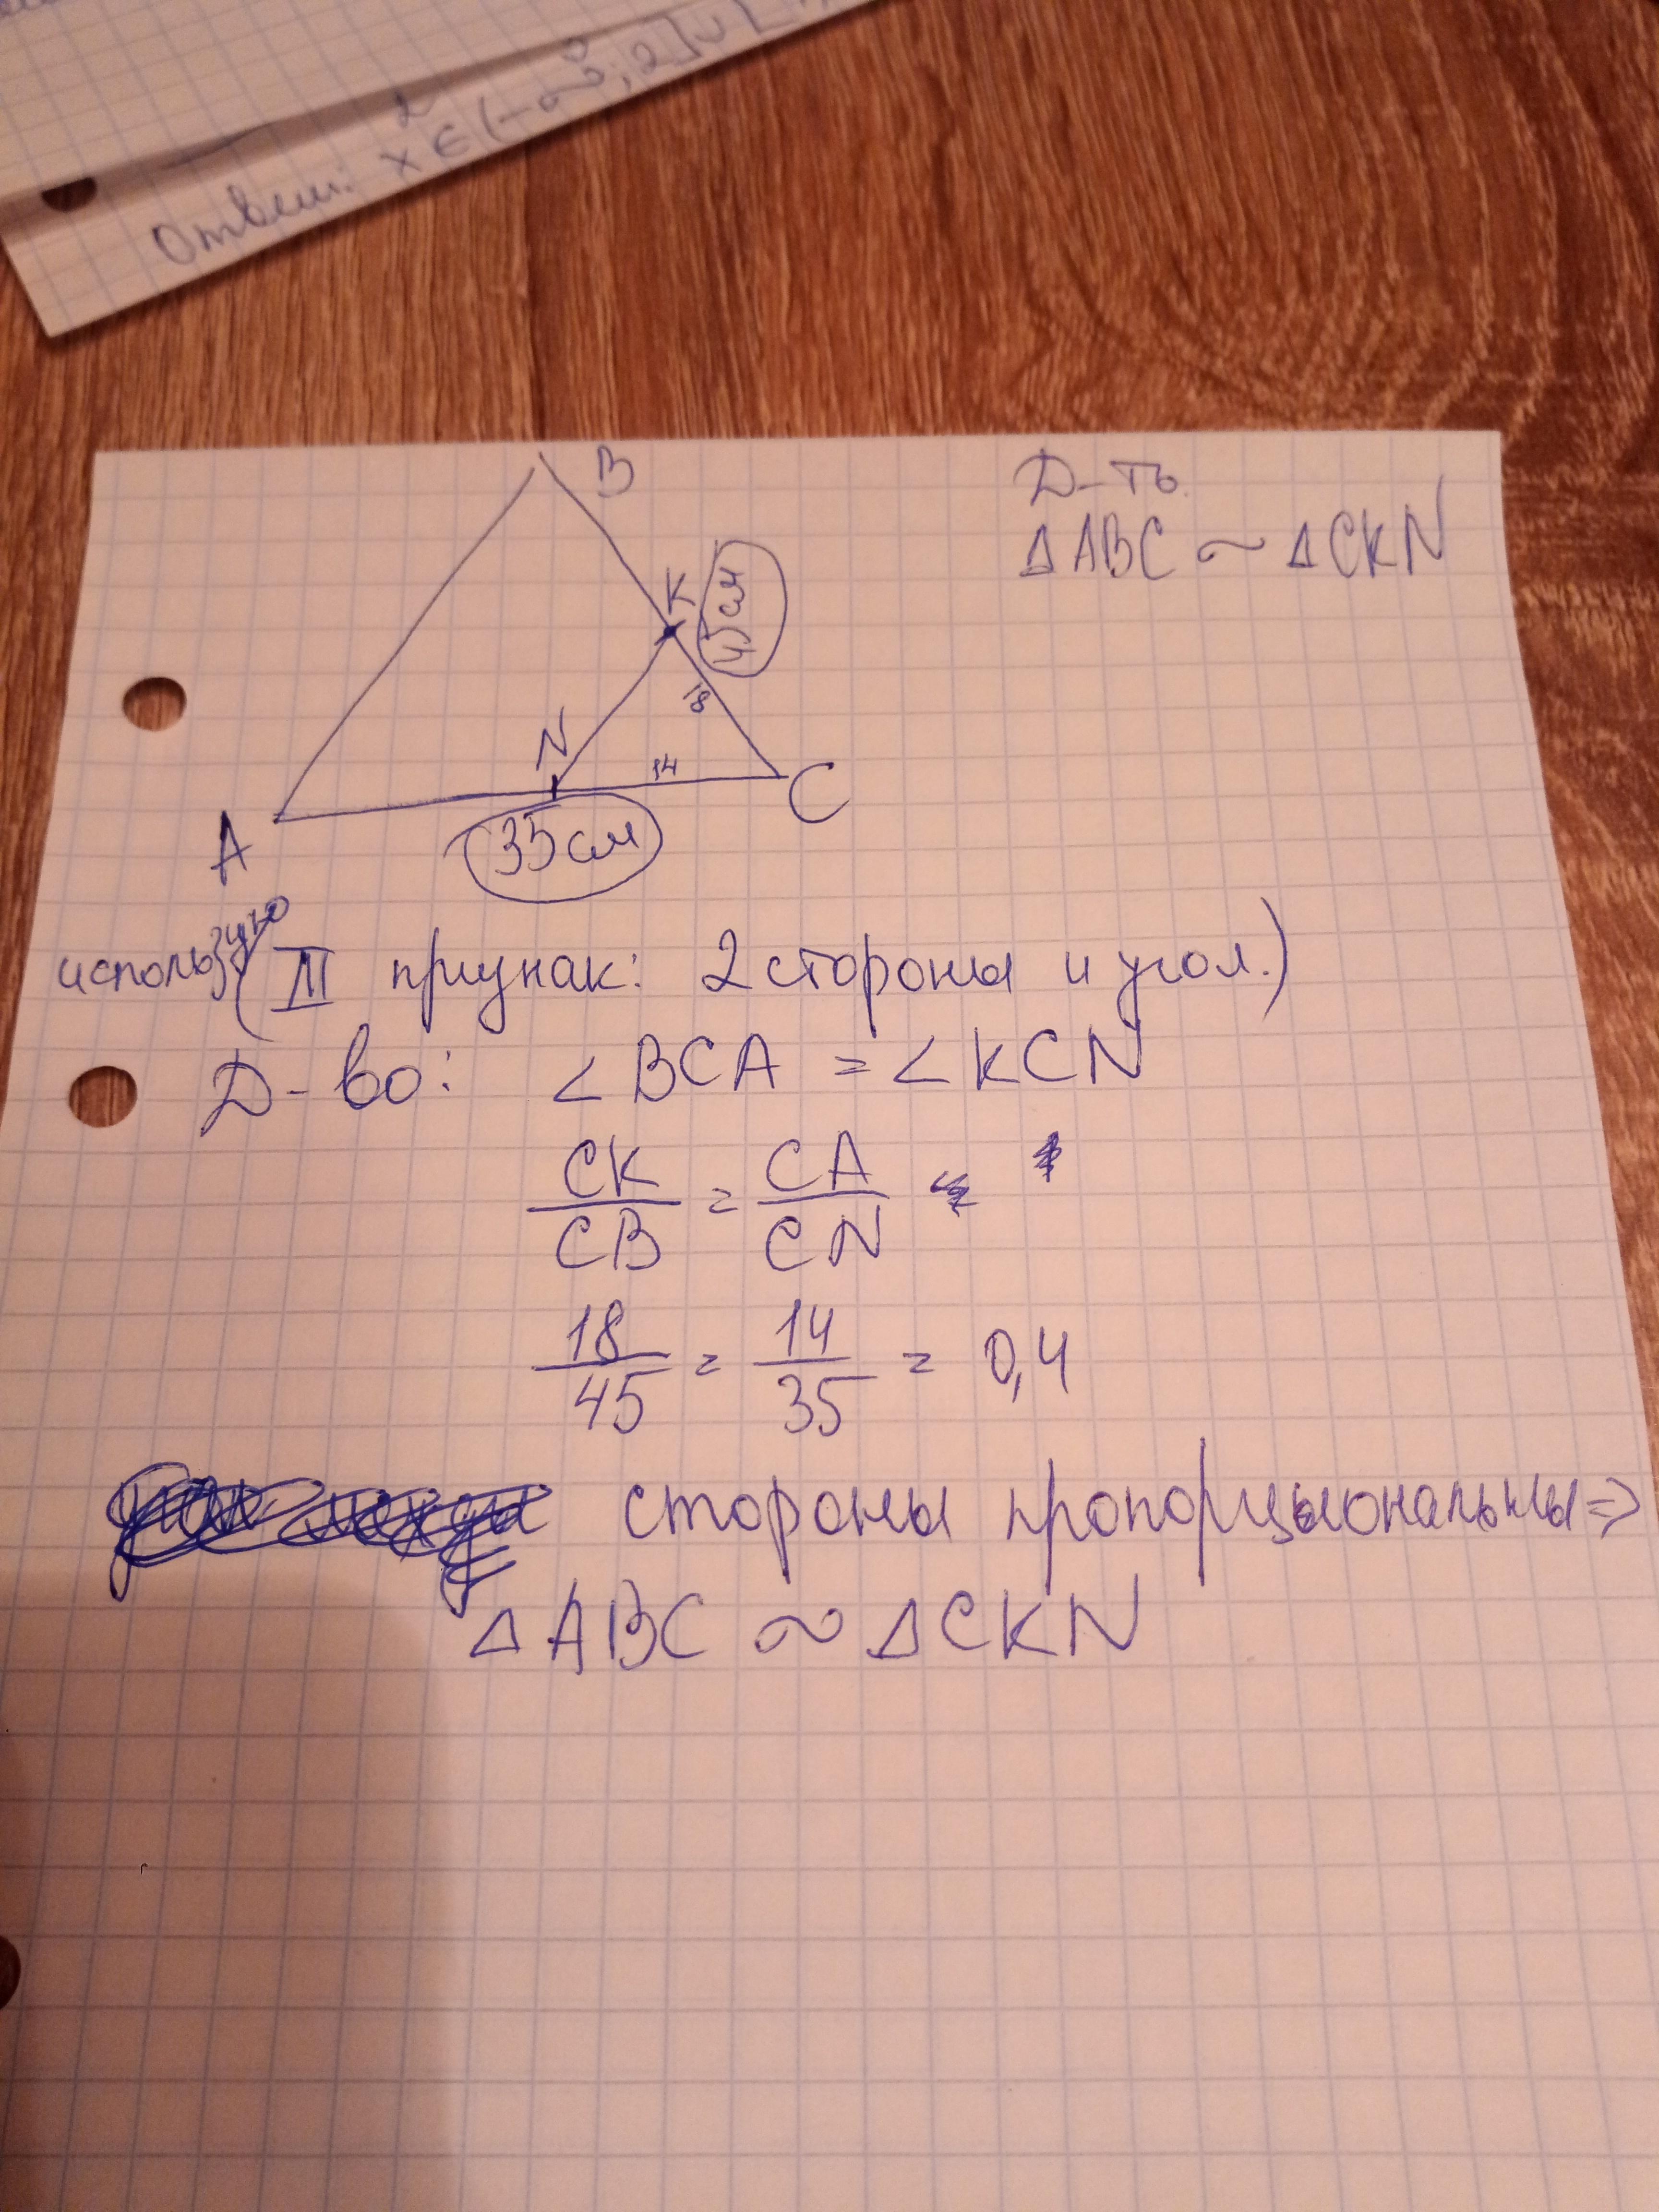 Ответ: x ∈ (-∞; 2] ∪
B
Д-ть
△ABC ~ △CKN
K
45см
18
N
14
A
C
35см
использую
(II признак: 2 стороны и угол.)
Д-во: ∠BCA = ∠KCN
CK/CB = CA/CN
18/45 = 14/35 = 0,4
стороны пропорциональны =>
△ABC ~ △CKN